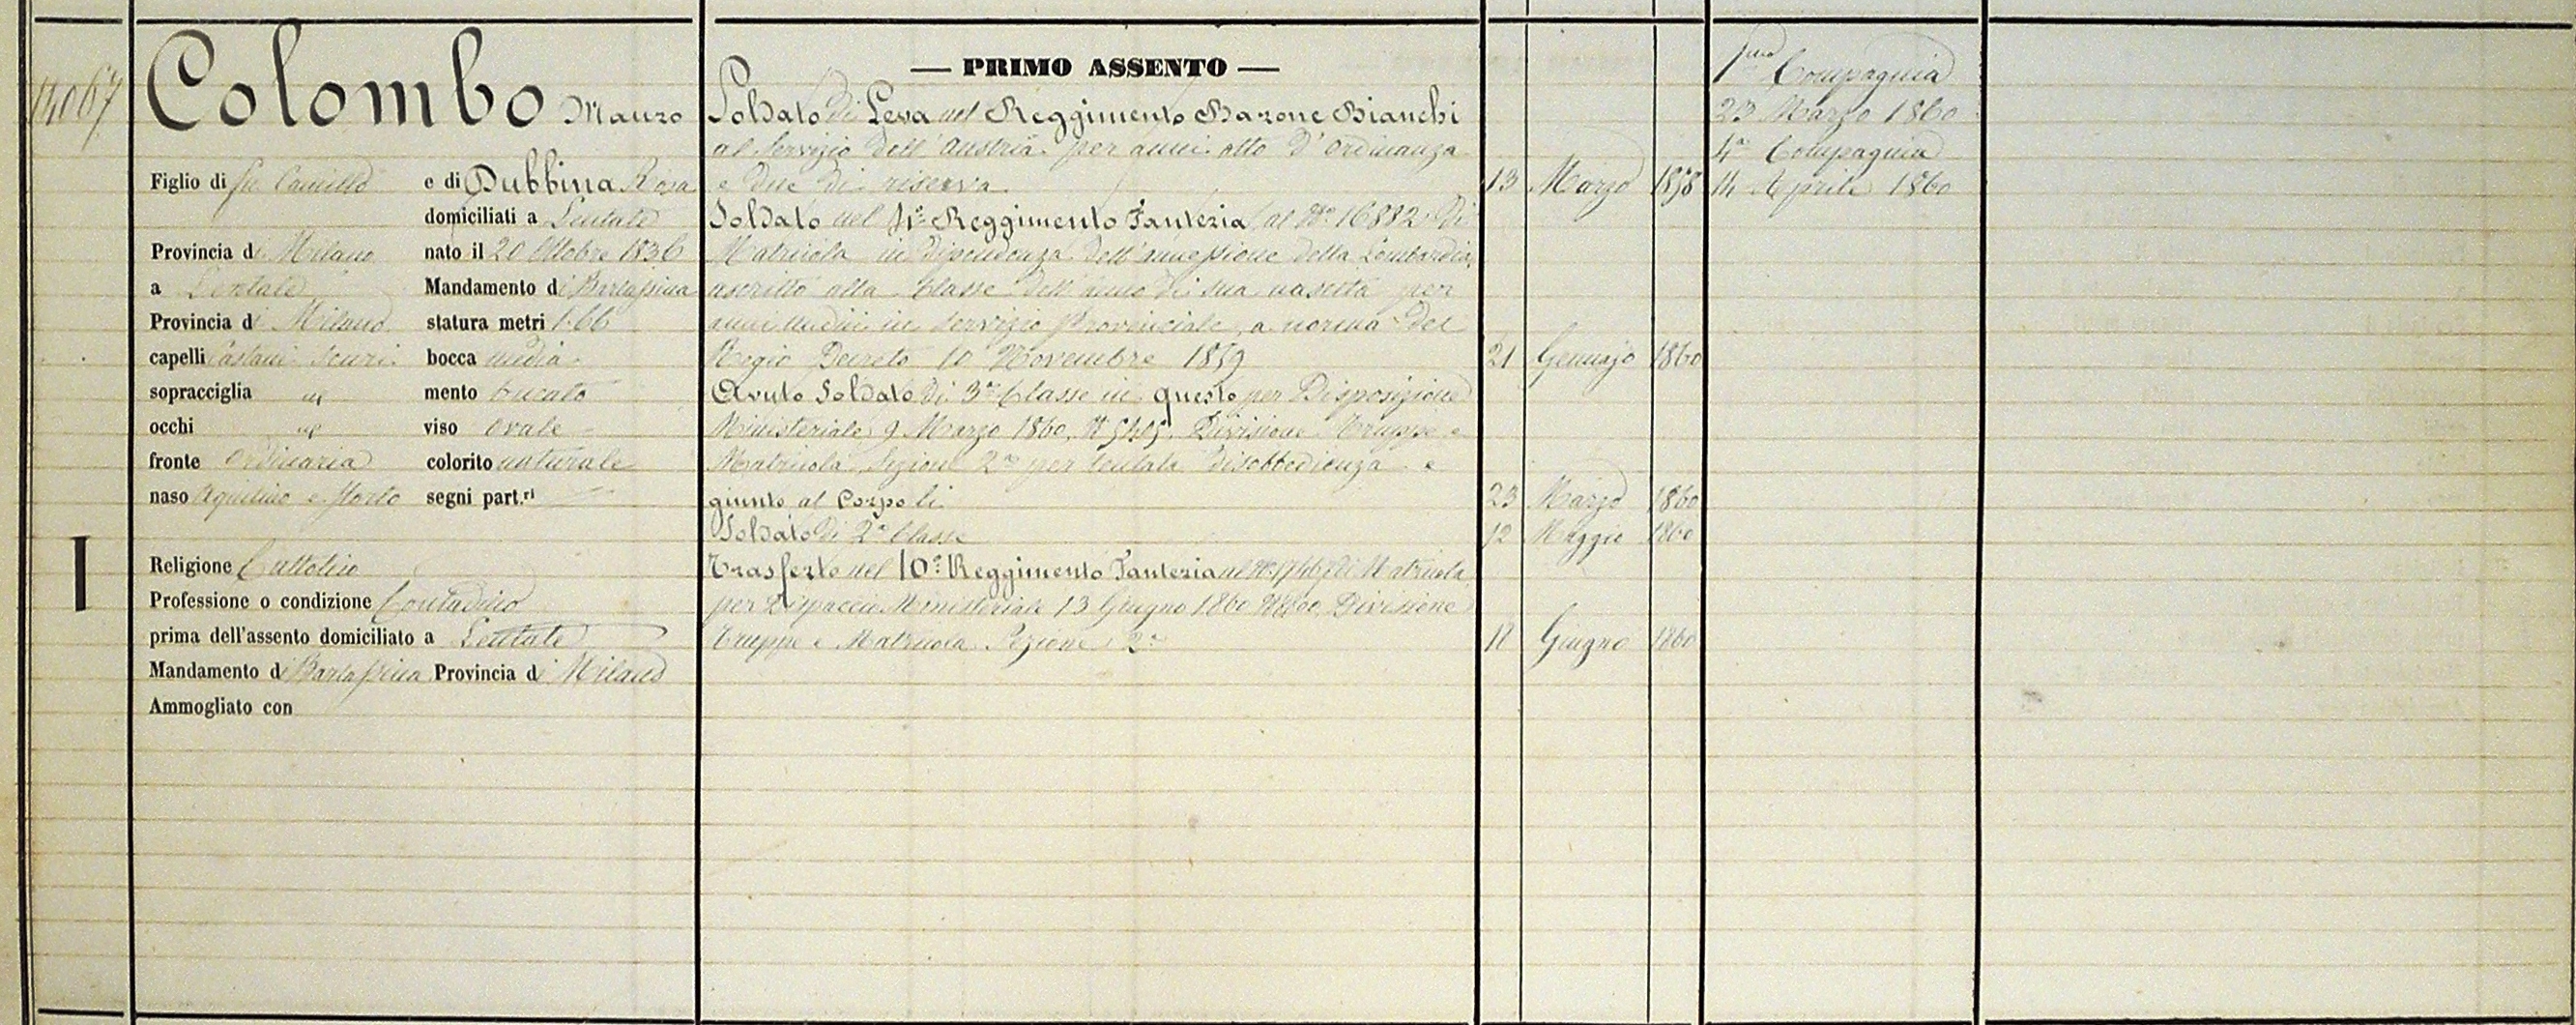 14067
Colombo Mauro
Figlio di fu Camillo e di Dubbina Rosa
domiciliati a Lentate
Provincia di Milano nato il 20 Ottobre 1836
a Lentate Mandamento di Barlassina
Provincia di Milano statura metri 1.66
capelli Castani Scuri bocca media
sopracciglia " mento bucato
occhi " viso ovale
fronte Ordinaria colorito naturale
naso Aquilino e storto segni part.ri
I
Religione Cattolico
Professione o condizione Contadino
prima dell'assento domiciliato a Lentate
Mandamento di Barlassina Provincia di Milano
Ammogliato con
— PRIMO ASSENTO —
Soldato di Leva nel Reggimento Barone Bianchi
al Servizio dell'Austria per anni otto d'ordinanza
e due di riserva 13 Marzo 1858
Soldato nel 4° Reggimento Fanteria al N° 16882 di
Matricola in dipendenza dell'annessione della Lombardia,
ascritto alla Classe dell'anno di sua nascita per
anni undici in servizio Provinciale, a norma del
Regio Decreto 10 Novembre 1859 21 Gennajo 1860
Avuto Soldato di 3a Classe in questo per Disposizione
Ministeriale 9 Marzo 1860, N 5405, Divisione Truppe e
Matricola Sezione 2a per tentata disobbedienza e
giunto al Corpo li 23 Marzo 1860
Soldato di 2a Classe 12 Maggio 1860
Trasferto nel 10° Reggimento Fanteria al N° di Matricola
per Dispaccio Ministeriale 13 Giugno 1860 Divisione
Truppe e Matricola Sezione 2a 18 Giugno 1860
1ma Compagnia
23 Marzo 1860
4a Compagnia
14 Aprile 1860